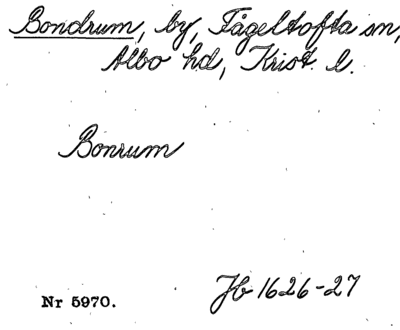 Bondrum, by, Fågeltofta sn,
Albo hd, Krist. l.
Bonrum
Nr 5970.
Jb 1626-27